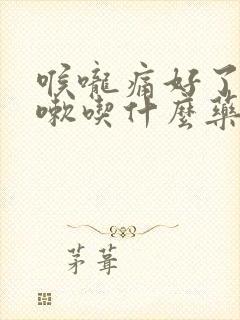 喉嚨痛好了
嗽喫什麼藥
茅葺